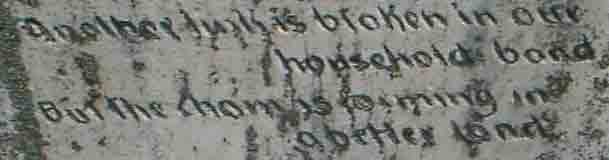 Another link is broken in our
household band
But the chain is forming in
a better land